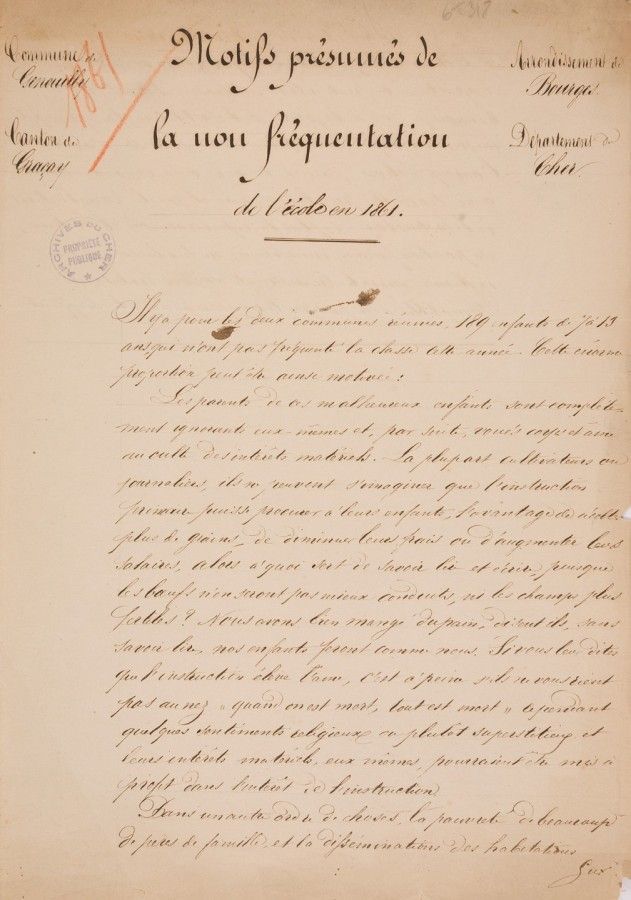 Commune de
Genouilly
Canton de
Graçay
1861
Motifs présumés de
la non fréquentation
de l'école en 1861.
Arrondissement de
Bourges
Département du
Cher.
ARCHIVES DU CHER
PROPRIÉTÉ
PUBLIQUE
Il y a pour les deux communes réunies, 189 enfants de 7 à 13
ans qui n'ont pas fréquenté la classe cette année. Cette énorme
proportion peut être ainsi motivée :
Les parents de ces malheureux enfants sont complète-
ment ignorants eux-mêmes et, par suite, voués corps et âme
au culte des intérêts matériels. La plupart cultivateurs ou
journaliers, ils ne peuvent s'imaginer que l'instruction
primaire puisse procurer à leurs enfants, l'avantage de récolter
plus de grains, de diminuer leurs frais ou d'augmenter leurs
salaires, alors à quoi sert de savoir lire et écrire, puisque
les bœufs n'en seront pas mieux conduits, ni les champs plus
fertiles ? Nous avons bien mangé du pain, disent-ils, sans
savoir lire, nos enfants feront comme nous. Si vous leur dites
que l'instruction élève l'âme, c'est à peine s'ils ne vous rient
pas au nez " quand on est mort, tout est mort " cependant
quelques sentiments religieux ou plutôt superstitieux et
leurs intérêts matériels, eux-mêmes, pourraient être mis à
profit dans l'intérêt de l'instruction
Dans un autre ordre de choses, la pauvreté de beaucoup
de pères de famille, et la disséminations des habitations